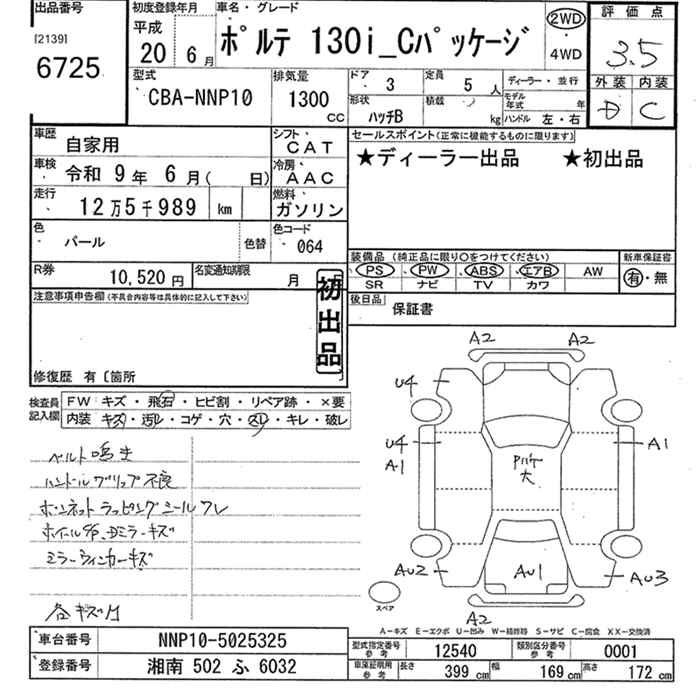 出品番号
[2139]
6725
初度登録年月
平成
20年 6月
車名・グレード
ポルテ 130i_Cパッケージ
2WD
・
4WD
評価点
3.5
外装 内装
D C
型式
CBA-NNP10
排気量
1300
CC
ドア
3
定員
5人
形状
ハッチB
積載
kg
ディーラー・並行
モデル年式 年
ハンドル 左・右
車歴
自家用
シフト
CAT
車検
令和 9年 6月( 日)
冷房
AAC
走行
12万5千989 km
燃料
ガソリン
色
パール
色替
色コード
064
R券
10,520円
名変通知期限
月
セールスポイント(正常に機能するものに限ります)
★ディーラー出品 ★初出品
装備品 (純正品に限り○をつけてください)
PS PW ABS エアB AW
SR ナビ TV カワ
新車保証書
有・無
後日品
保証書
注意事項申告欄(不具合内容等は具体的に記入して下さい)
初出品
修復歴 有〔箇所
検査員記入欄
FW キズ・飛石・ヒビ割・リペア跡・×要
内装 キズ・汚レ・コゲ・穴・スレ・キレ・破レ
ベルト鳴き
ハンドルグリップ不良
ボンネットラッピングシールワレ
ミラーウィンカーキズ
各キズ凹
A2 A2
U4
U4
A1
A1
Pルーケ
大
AU2
AU1
AU3
A2
スペア
A−キズ E−エクボ U−凹み W−補修跡 S−サビ C−腐食 XX−交換済
車台番号
NNP10-5025325
登録番号
湘南 502 ふ 6032
型式指定番号
参考
12540
類別区分番号
参考
0001
車庫証明用
参考
長さ 399 cm
幅 169 cm
高さ 172 cm